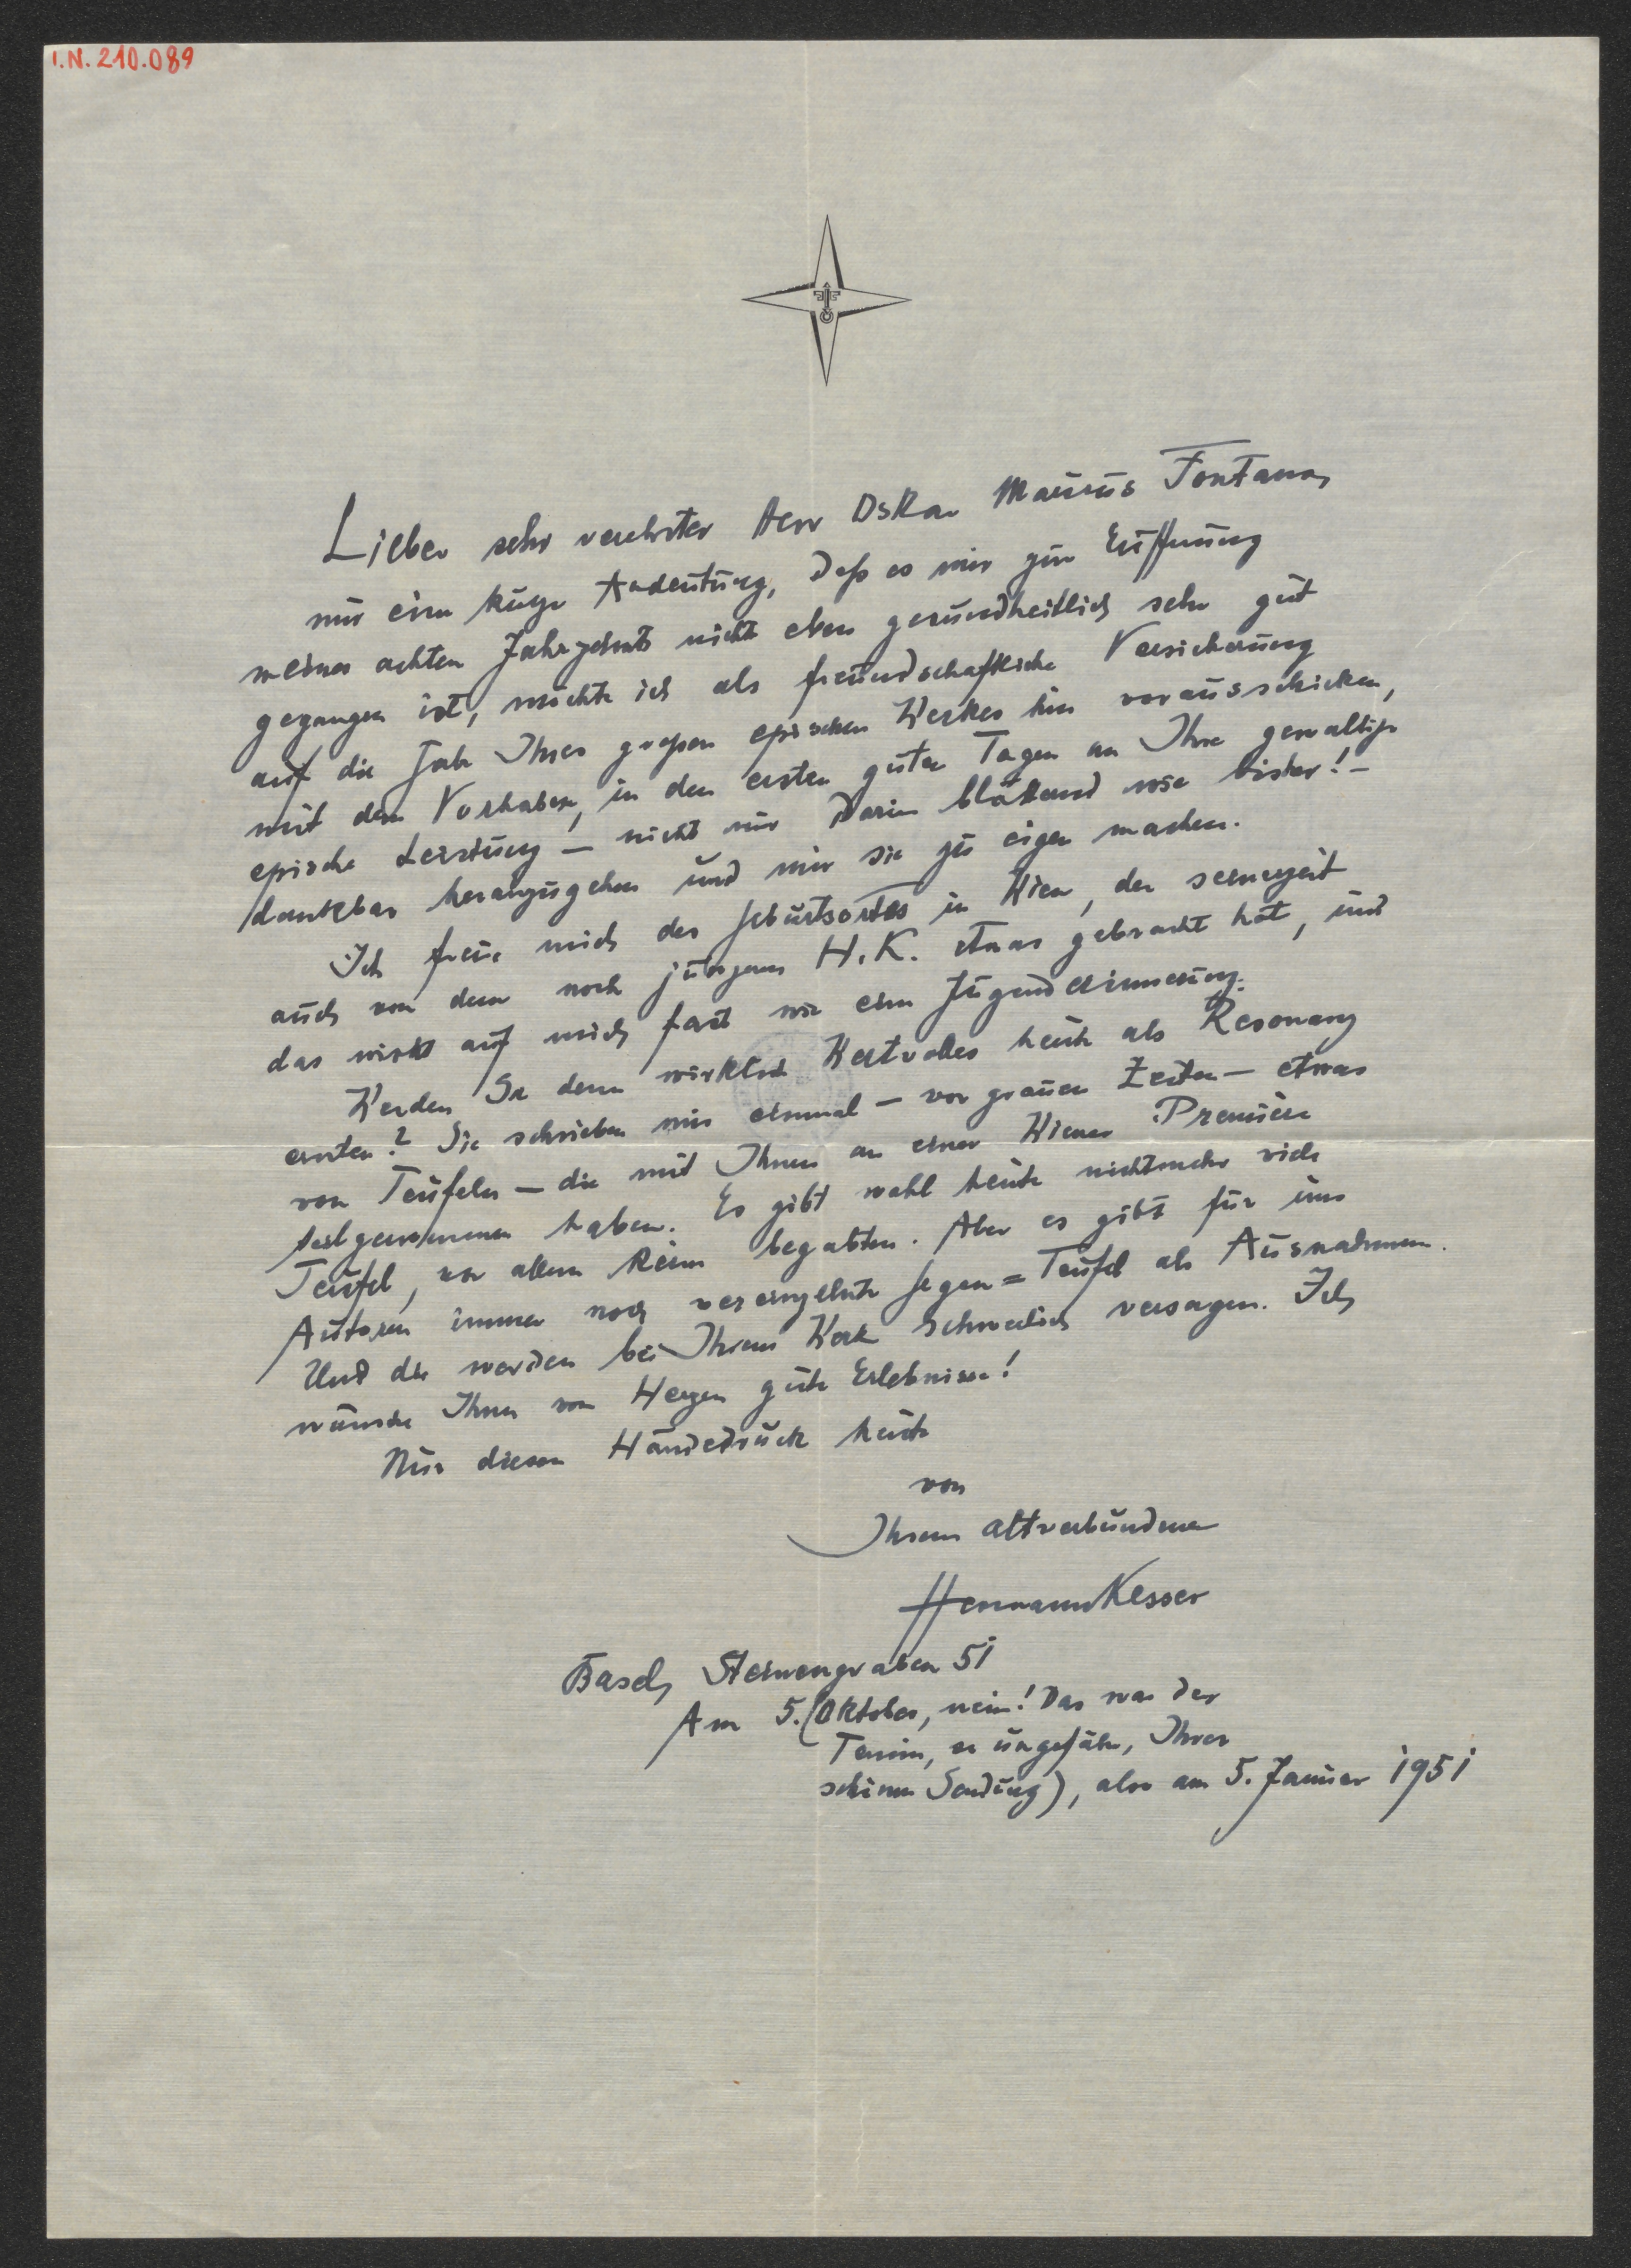 I.N. 210.089
Lieber sehr verehrter Herr Oskar Maurus Fontana,
nur eine kurze Andeutung, daß es mir zur Eröffnung
meines achten Jahrzehnts nicht eben gesundheitlich sehr gut
gegangen ist, möchte ich als freundschaftliche Versicherung
auf die Gabe Ihres großen epischen Werkes hin vorausschicken,
mit dem Vorhaben, in den ersten guten Tagen an Ihre gewaltige
epische Leistung – nicht nur darin blätternd wie bisher! –
dankbar heranzugehen und mir sie zu eigen machen.
Ich freue mich des Geburtsortes in Wien, der seinerzeit
auch von dem noch jüngeren H.K. etwas gebracht hat, und
das wirkt auf mich fast wie eine Jugenderinnerung.
Werden Sie denn wirklich Wertvolles heute als Resonanz
ernten? Sie schrieben mir einmal – vor grauen Zeiten – etwas
von Teufeln – die mit Ihnen an einer Wiener Premiere
teilgenommen haben. Es gibt wohl heute nichtmehr viele
Teufel, vor allem keine begabten. Aber es gibt für uns
Autoren immer noch vereinzelte Gegen=Teufel als Ausnahmen.
Und die werden bei Ihrem Werk schwerlich versagen. Ich
wünsche Ihnen von Herzen gute Erlebnisse!
Nur diesen Händedruck heute
von
Ihrem altverbundenen
Hermann Kesser
Basel, Sternengraben 51
Am 5. (Oktober, nein! Das war der
Termin, so ungefähr, Ihrer
schönen Sendung), also am 5. Januar 1951